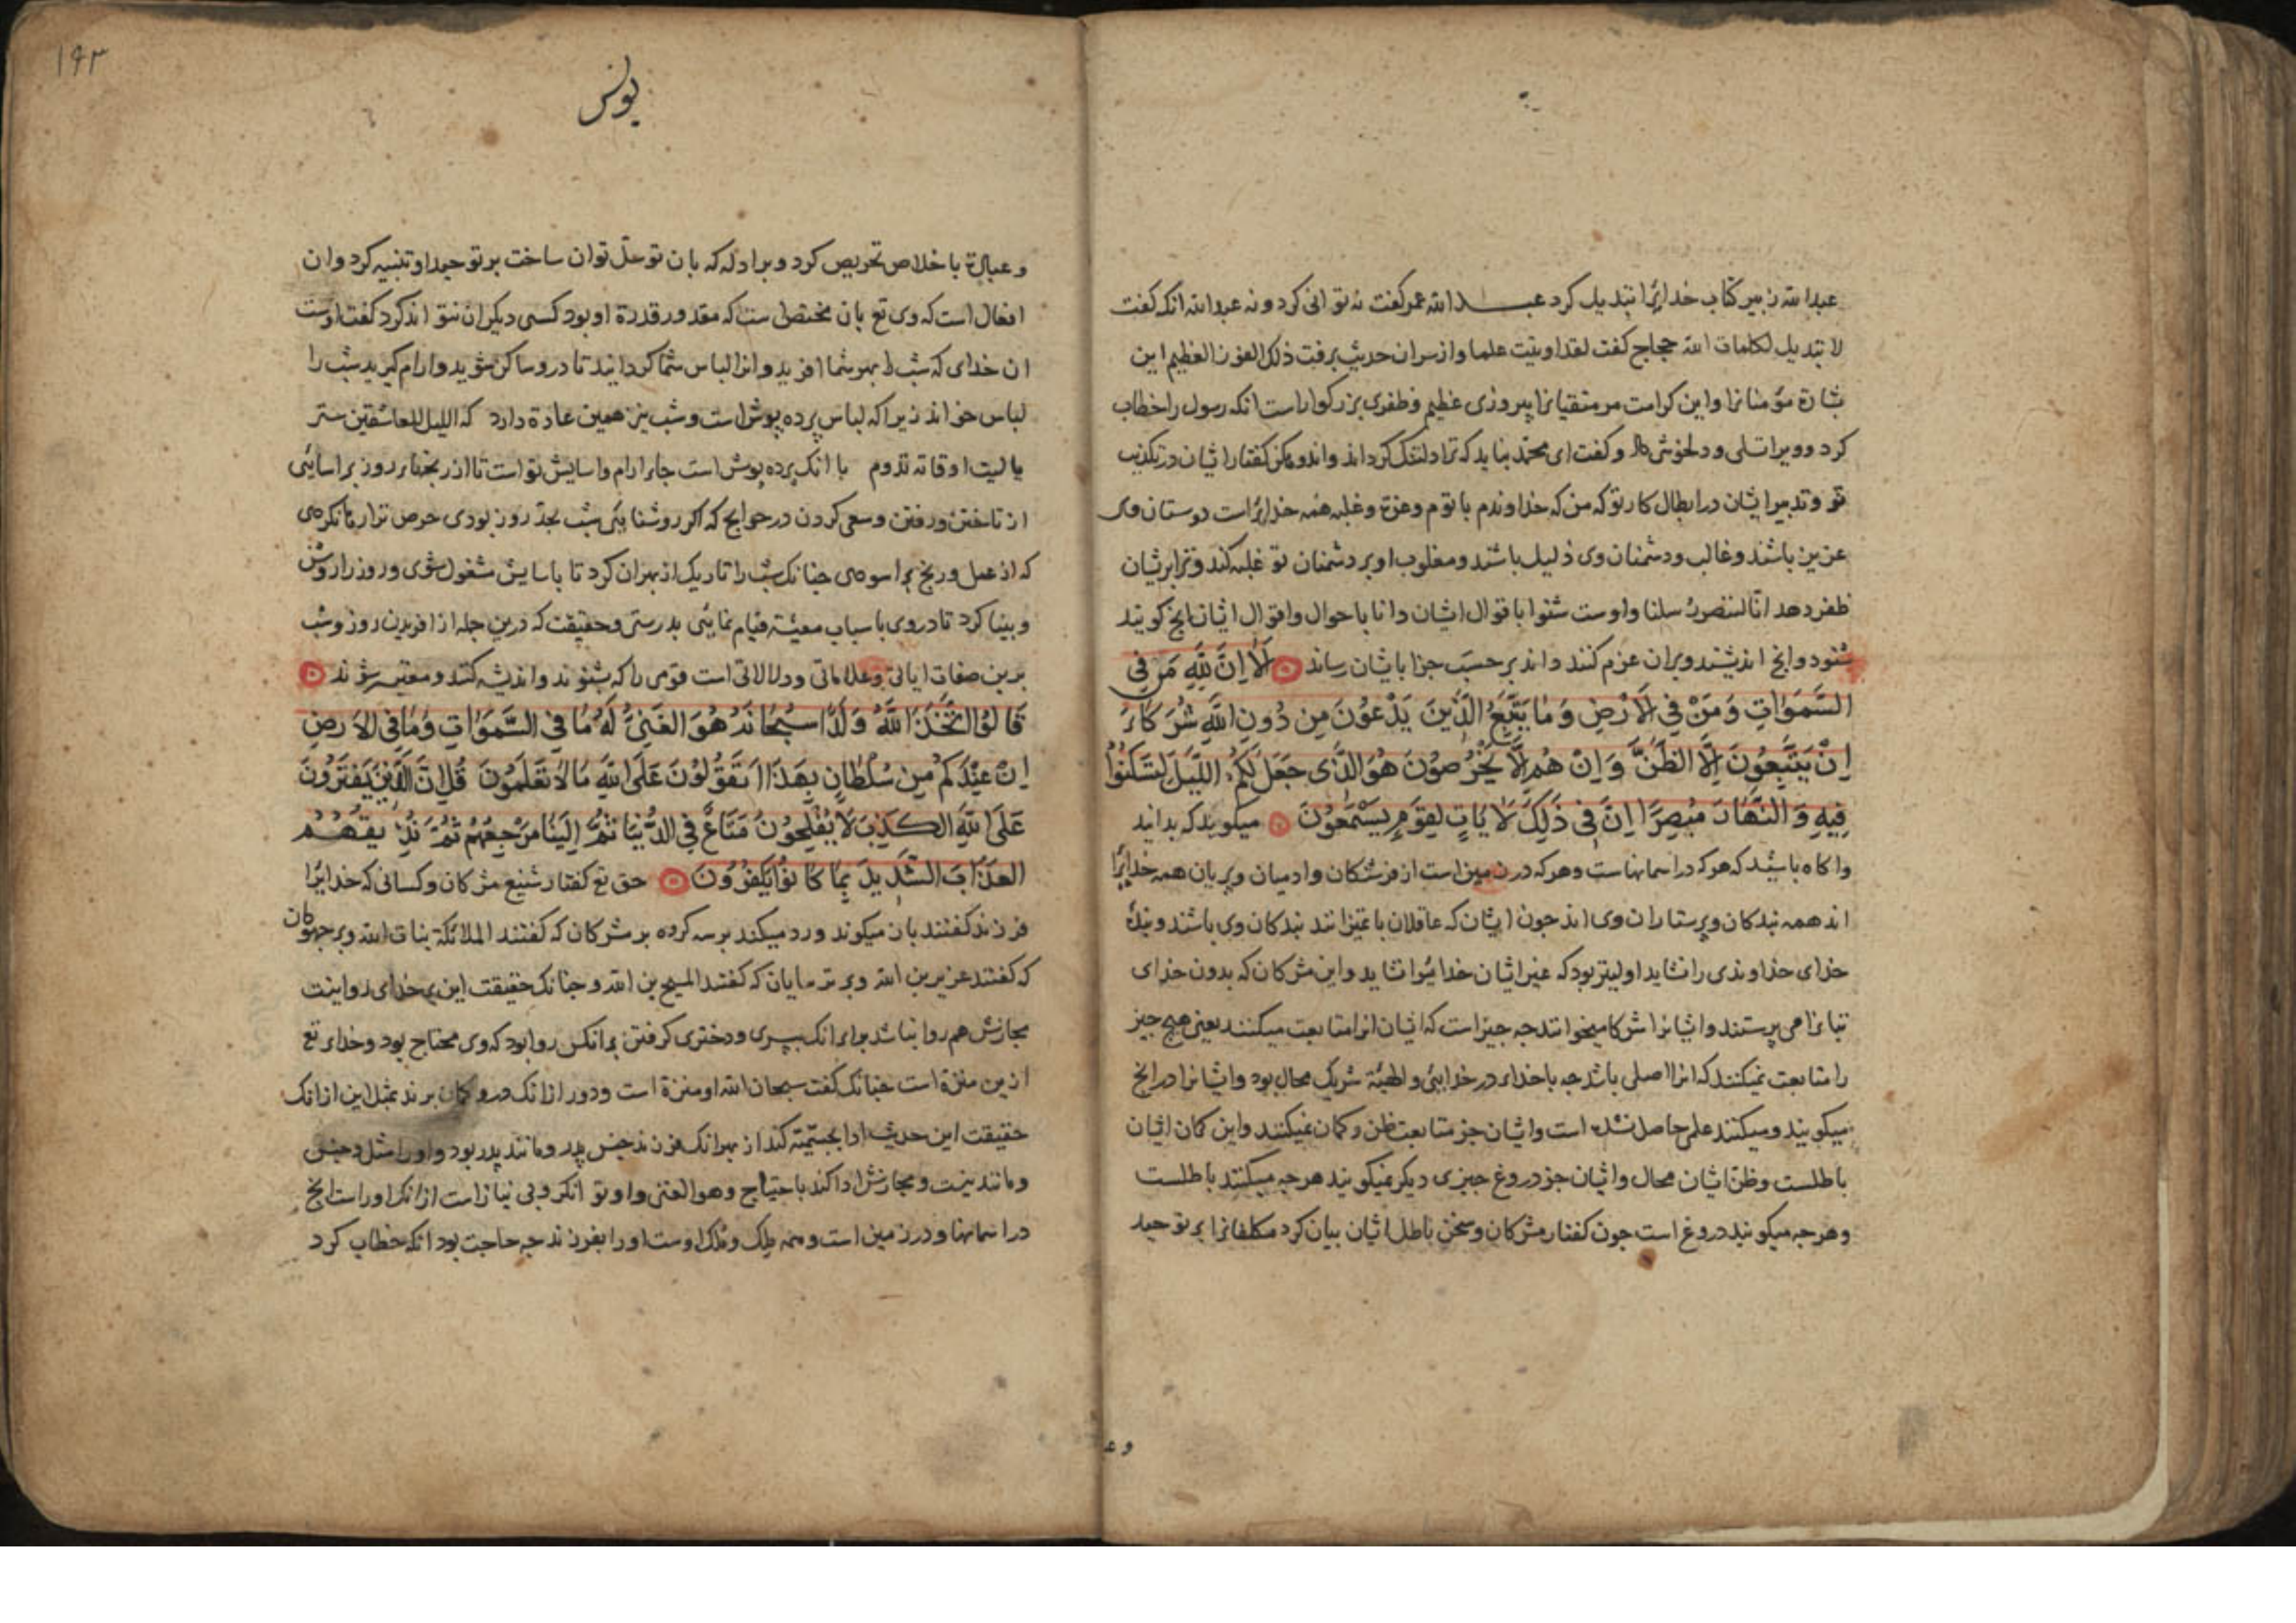 عبدالله زبیر کتاب خدایرا تبدیل کرد عبدالله عمر گفت نه تو انی کرد و نه عبدالله انکه کفت
لا تبدیل لکلمات الله حجاج کفت لقد اوتیت علما واز سران حدیث برفت ذلک الفوز العظیم این
بشارة مؤمنانرا واین کرامت مر متقیانرا پیروزی عظیم وظفری بزرکوارست انکه رسول را خطاب
کرد وویرا تسلی ودلخوشی داد وکفت ای محمد نباید که ترا دلتنک کرداند واندوهکن کفتار ایشان در تکذیب
تو وتدبیر ایشان در ابطال کار توکه من که خداوندم با توم وعزة وغلبه همه خدایراست دوستان وی
عزیز باشند وغالب ودشمنان وی ذلیل باشند ومغلوب او بر دشمنان تو غلبه کند وترا بریشان
ظفر دهد انا لننصر رسلنا واوست شنوا باقوال ایشان دانا باحوال وافوال ایشان انج کویند
شنود وانج اندیشند وبران عزم کنند داند بر حسب جزا بایشان رساند الا ان لله من فی
السموات ومن فی الارض وما یتبع الذین یدعون من دون الله شرکاء
ان یتبعون الا الظن وان هم الا یخرصون هو الذی جعل لکم اللیل لتسکنوا
فیه والنهار مبصرا ان فی ذلک لایات لقوم یسمعون میکوید که بدانید
واکاه باشید که هرکه در اسمانهاست وهرکه در زمین است از فرشتکان وادمیان وپریان همه خدایرا
اند همه بندکان وپرستاران وی اند جون ایشان که عاقلان باتمیزانند بندکان وی باشند وبندهٔ
خدای خداوندی را نشاید اولیتر بود که غیر ایشان خدائیرا نشاید واین مشرکان که بدون خدای
بتانرا می پرستند وایشانرا شرکا میخوانند جه جیز است که ایشان انرا متابعت میکنند یعنی هیچ جیز
را متابعت نمیکنند که انرا اصلی باشد جه با خدای در خدایی والهیة شریک محال بود وایشانرا در انج
میکویند ومیکنند علمی حاصل نشده است وایشان جز متابعت ظن وکمان نمیکنند واین کمان ایشان
باطلست وظن ایشان محال وایشان جز دروغ جیزی دیکر نمیکویند هرجه میکنند باطلست
وهرجه میکویند دروغ است جون کفتار مشرکان وسخن باطل ایشان بیان کرد مکلفانرا بر توحید
وع
۱۹۳
یونس
وعبادة باخلاص تحریص کرد وبر ادله که بان توصل توان ساخت بر توحید او تنبیه کرد وان
افعال است که وی تع بان مختص است که مقدور قدرة او بود کسی دیکر ان نتواند کرد کفت اوست
ان خدای که شب را بهر شما افرید وانرا لباس شما کردانید تا درو ساکن شوید وارام کیرید شب را
لباس خواند زیرا که لباس پرده پوش است وشب نیز همین عادة دارد که اللیل للعاشقین ستر
یا لیت اوقاته تدوم با انک پرده پوش است جای ارام واسایش تو است تا از رنجهای روز براسائی
از تاختن ورفتن وسعی کردن در حوایج که اکر روشنایی شب بحد روز بودی حرص ترا رها نکردی
که از عمل ورنج براسودی جنانک شب را تاریک از بهر ان کرد تا باسایش مشغول شوی وروز را روشن
وبینا کرد تا در وی باسباب معیشة قیام نمایی بدرستی وحقیقت که درین جمله از افریدن روز وشب
برین صفات ایاتی وعلاماتی ودلالاتی است قومی را که بشنوند واندیشه کنند ومعتبر شوند
قالوا اتخذ الله ولدا سبحانه هو الغنی له ما فی السموات وما فی الارض
ان عندکم من سلطان بهذا اتقولون علی الله ما لا تعلمون قل ان الذین یفترون
علی الله الکذب لا یفلحون متاع فی الدنیا ثم الینا مرجعهم ثم نذیقهم
العذاب الشدید بما کانوا یکفرون حق تع کفتار شنیع مشرکان وکسانی که خدایرا
فرزند کفتند باز میکوند ورد میکند بر سه کرده بر مشرکان که کفتند الملائکة بنات الله وبر جهودان
که کفتند عزیر بن الله وبر ترسایان که کفتند المسیح بن الله وجنانک حقیقت این بر خدای روا نیست
مجازش هم روا نباشد برای انک پسری ودختری کرفتن بر انکس روا بود که وی محتاج بود وخدای تع
ازین منزه است جنانک کفت سبحان الله او منزه است ودور از انک درو کمان برند بمثل این از انک
حقیقت این حدیث ادا بجسمیة کند از بهر انک فرزند جنس پدر ومانند پدر بود واورا مثل وجنس
ومانند نیست ومجازش ادا کند باحتیاج وهو الغنی واو توانکر وبی نیاز است از انک اوراست انج
در اسمانها ودر زمین است وهمه ملک وملک اوست اورا بفرزند جه حاجت بود انکه خطاب کرد